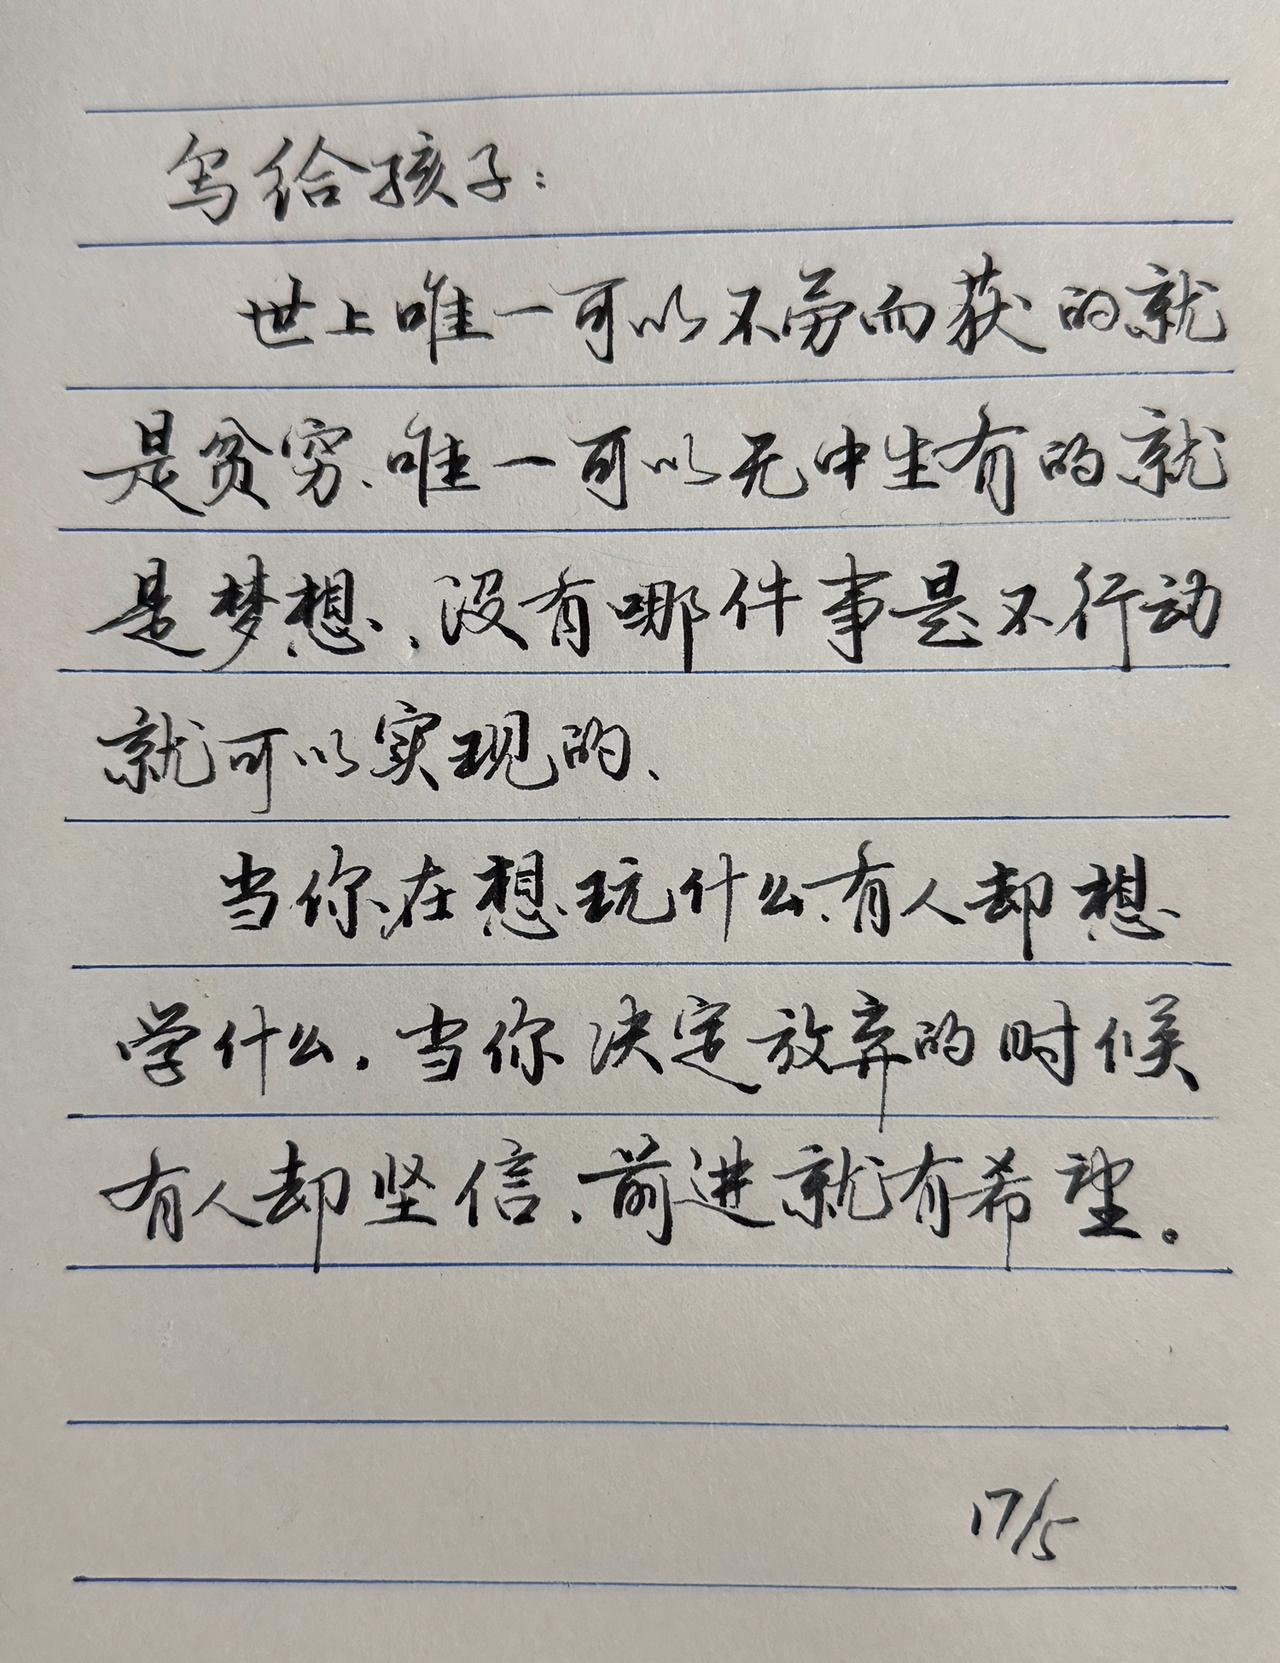 写给孩子：
世上唯一可以不劳而获的就
是贫穷、唯一可以无中生有的就
是梦想、没有哪件事是不行动
就可以实现的、
当你在想玩什么、有人却想
学什么．当你决定放弃的时候
有人却坚信、前进就有希望。
17/5